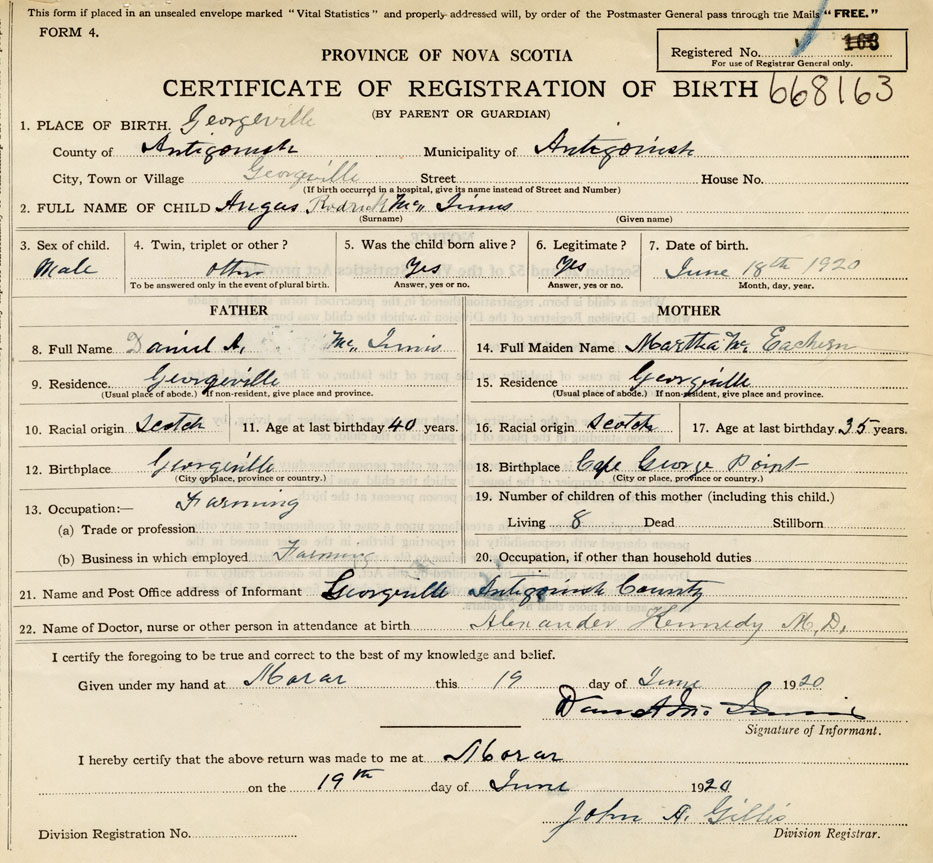 This form if placed in an unsealed envelope marked "Vital Statistics" and properly addressed will, by order of the Postmaster General pass through the Mails "FREE."
FORM 4.
Registered No. 163
For use of Registrar General only.
PROVINCE OF NOVA SCOTIA
CERTIFICATE OF REGISTRATION OF BIRTH 668163
(BY PARENT OR GUARDIAN)
1. PLACE OF BIRTH. Georgeville
County of Antigonish Municipality of Antigonish
City, Town or Village Georgeville Street House No.
(If birth occurred in a hospital, give its name instead of Street and Number)
2. FULL NAME OF CHILD Angus Rodrick Mc Innis
(Surname) (Given name)
3. Sex of child. 4. Twin, triplet or other? 5. Was the child born alive? 6. Legitimate? 7. Date of birth.
Male other Yes Yes June 18th 1920
To be answered only in the event of plural birth. Answer, yes or no. Answer, yes or no. Month, day, year.
FATHER MOTHER
8. Full Name Daniel A. Mc Innis 14. Full Maiden Name Martha Mc Eachern
9. Residence Georgeville 15. Residence Georgeville
(Usual place of abode.) If non-resident, give place and province. (Usual place of abode.) If non-resident, give place and province.
10. Racial origin Scotch 11. Age at last birthday 40 years. 16. Racial origin Scotch 17. Age at last birthday 35 years.
12. Birthplace Georgeville 18. Birthplace Cape George Point
(City or place, province or country.) (City or place, province or country.)
13. Occupation:— Farming 19. Number of children of this mother (including this child.)
(a) Trade or profession Living 8 Dead Stillborn
(b) Business in which employed Farming 20. Occupation, if other than household duties
21. Name and Post Office address of Informant Georgeville Antigonish County
22. Name of Doctor, nurse or other person in attendance at birth Alexander Kennedy M.D.
I certify the foregoing to be true and correct to the best of my knowledge and belief.
Given under my hand at Morar this 19 day of June 1920
Dan A Mc Innis
Signature of Informant.
I hereby certify that the above return was made to me at Morar
on the 19th day of June 1920
John A. Gillis
Division Registration No. Division Registrar.